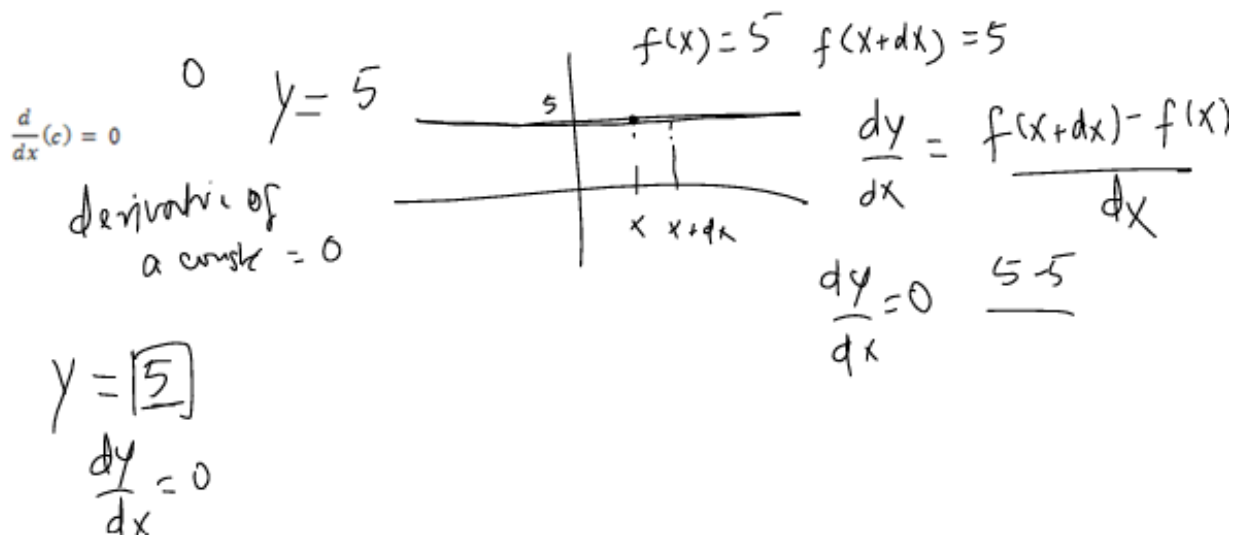 0
y = 5
d/dx (c) = 0
derivative of
a const = 0
y = 5
dy/dx = 0
5
x x+dx
f(x) = 5 f(x+dx) = 5
dy/dx = f(x+dx) - f(x) / dx
dy/dx = 0 5-5